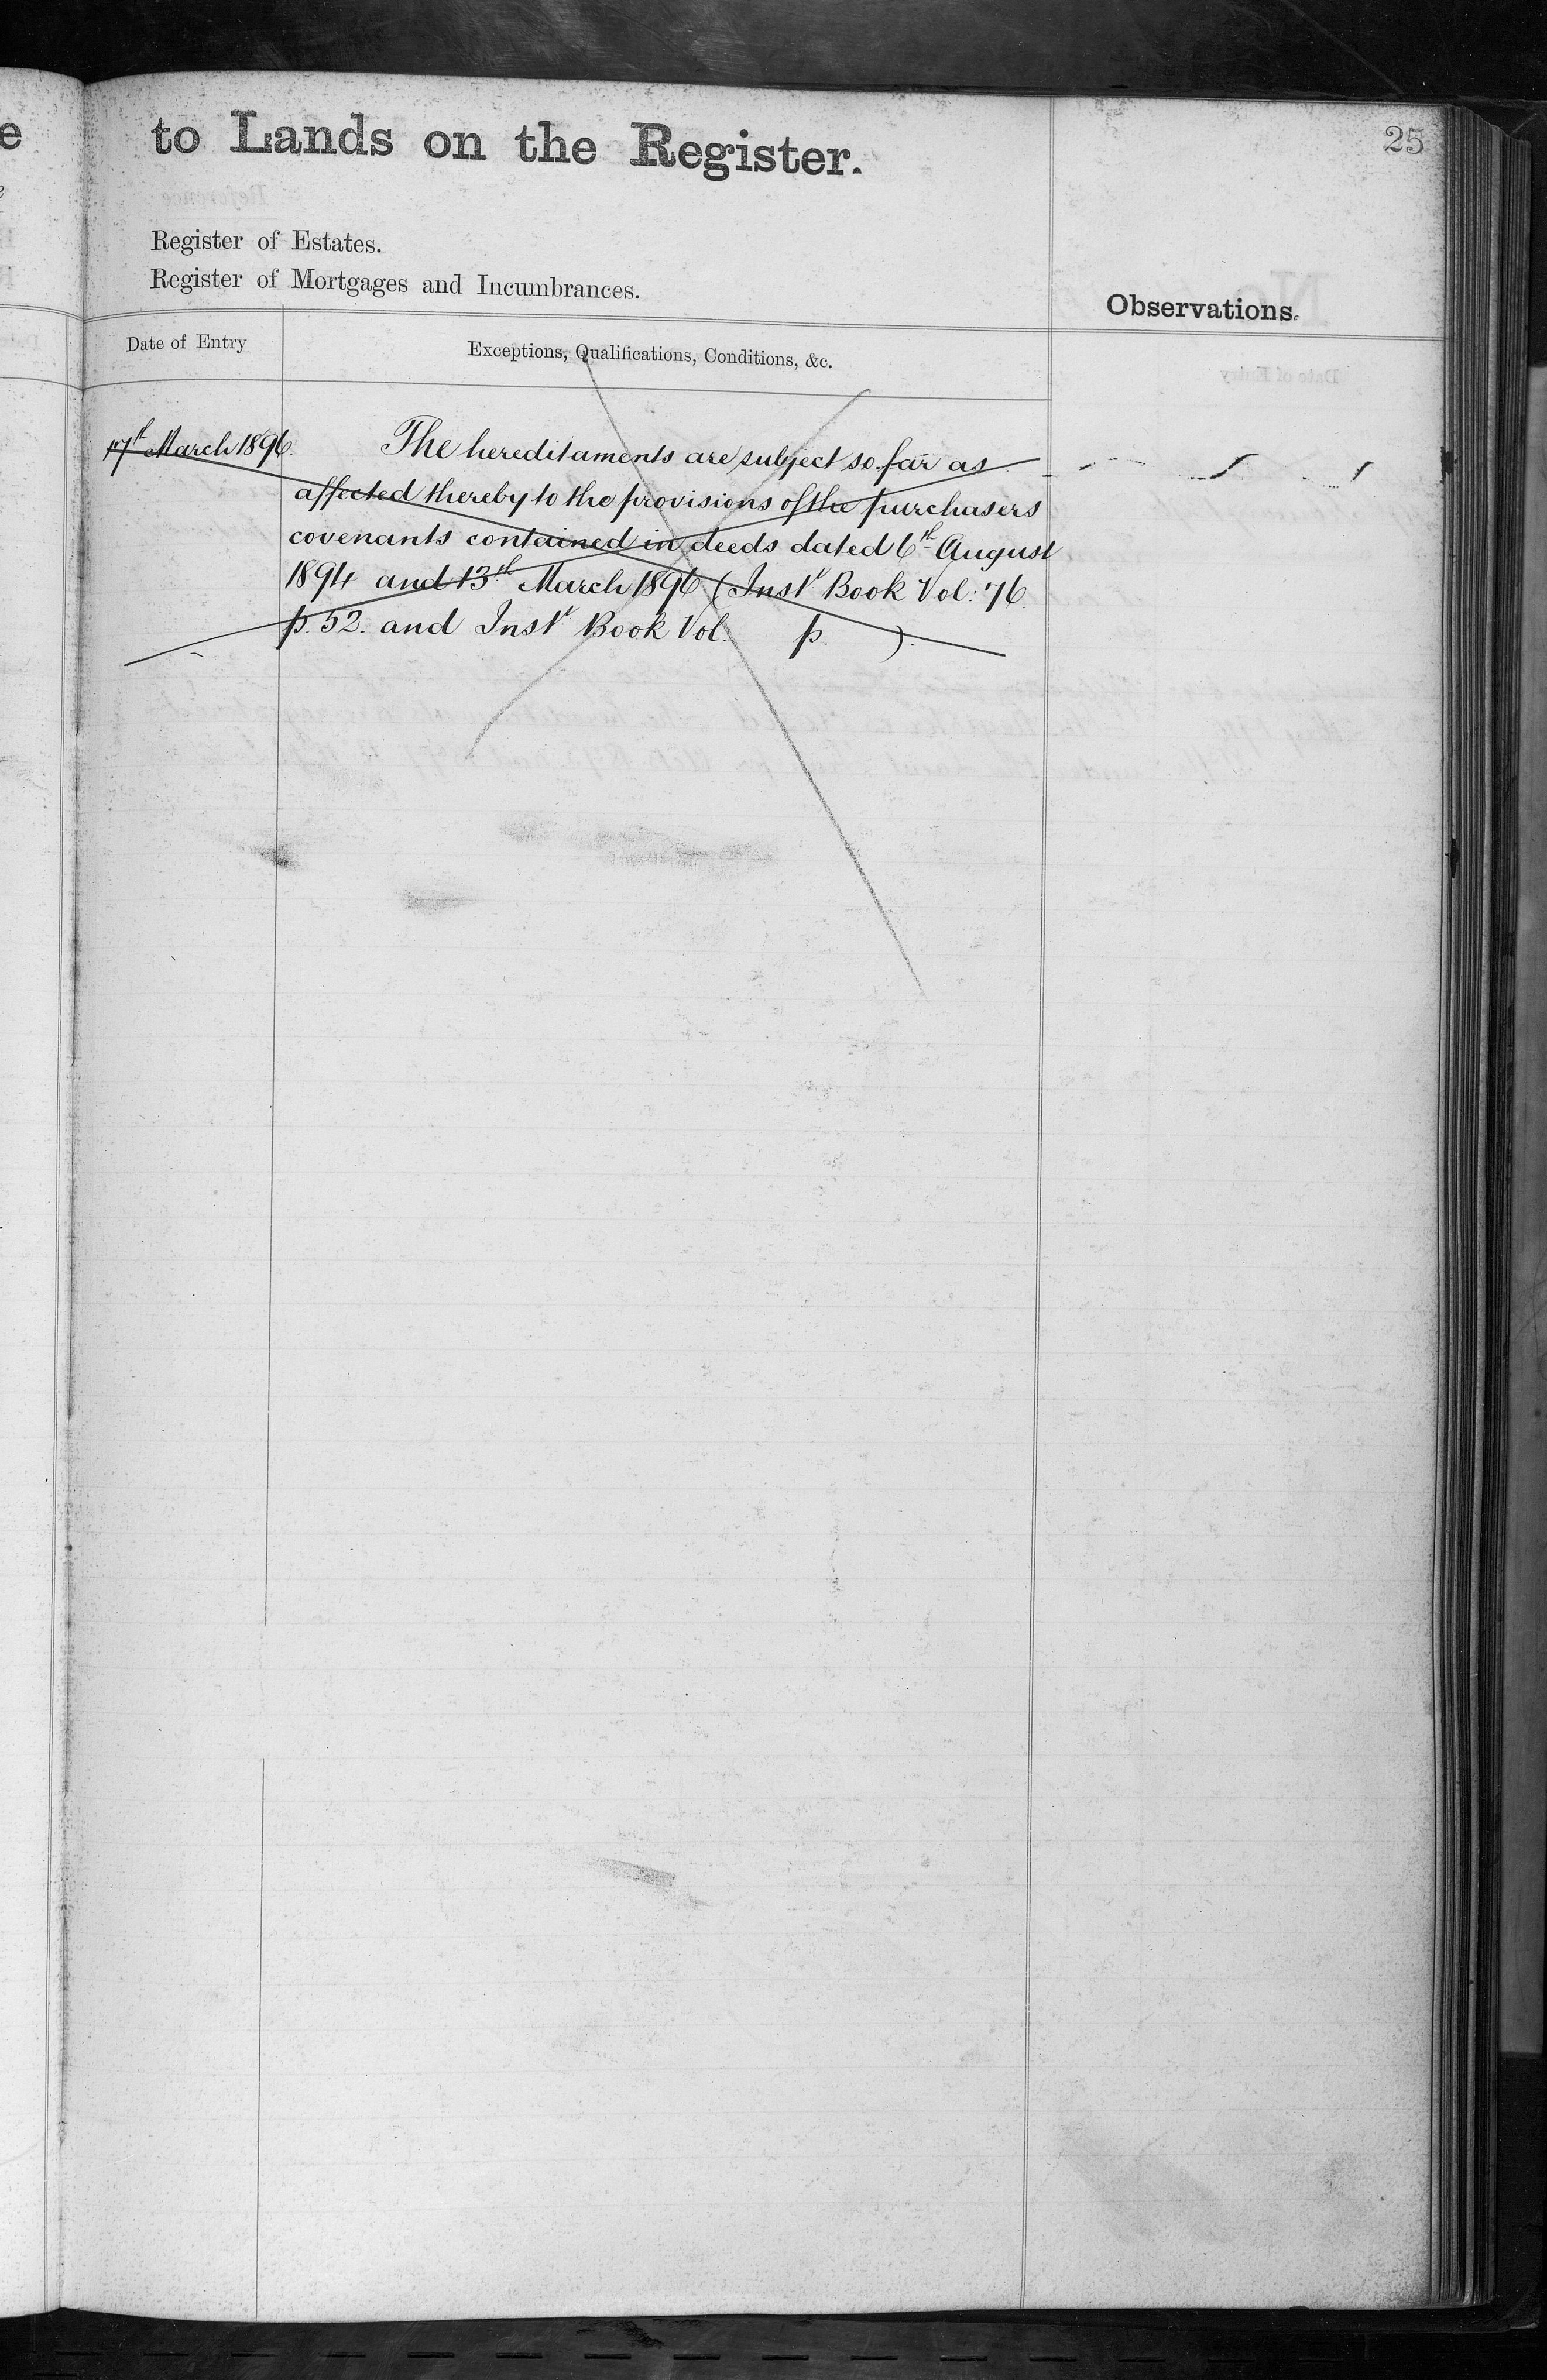 25
to Lands on the Register.
Register of Estates.
Register of Mortgages and Incumbrances.
Observations.
Date of Entry
Exceptions, Qualifications, Conditions, &c.
17th March 1896.
The hereditaments are subject so far as
affected thereby to the provisions of the purchasers
covenants contained in deeds dated 6th August
1894 and 13th March 1896 (Instt Book Vol: 76.
p. 52. and Instt Book Vol. p. ).